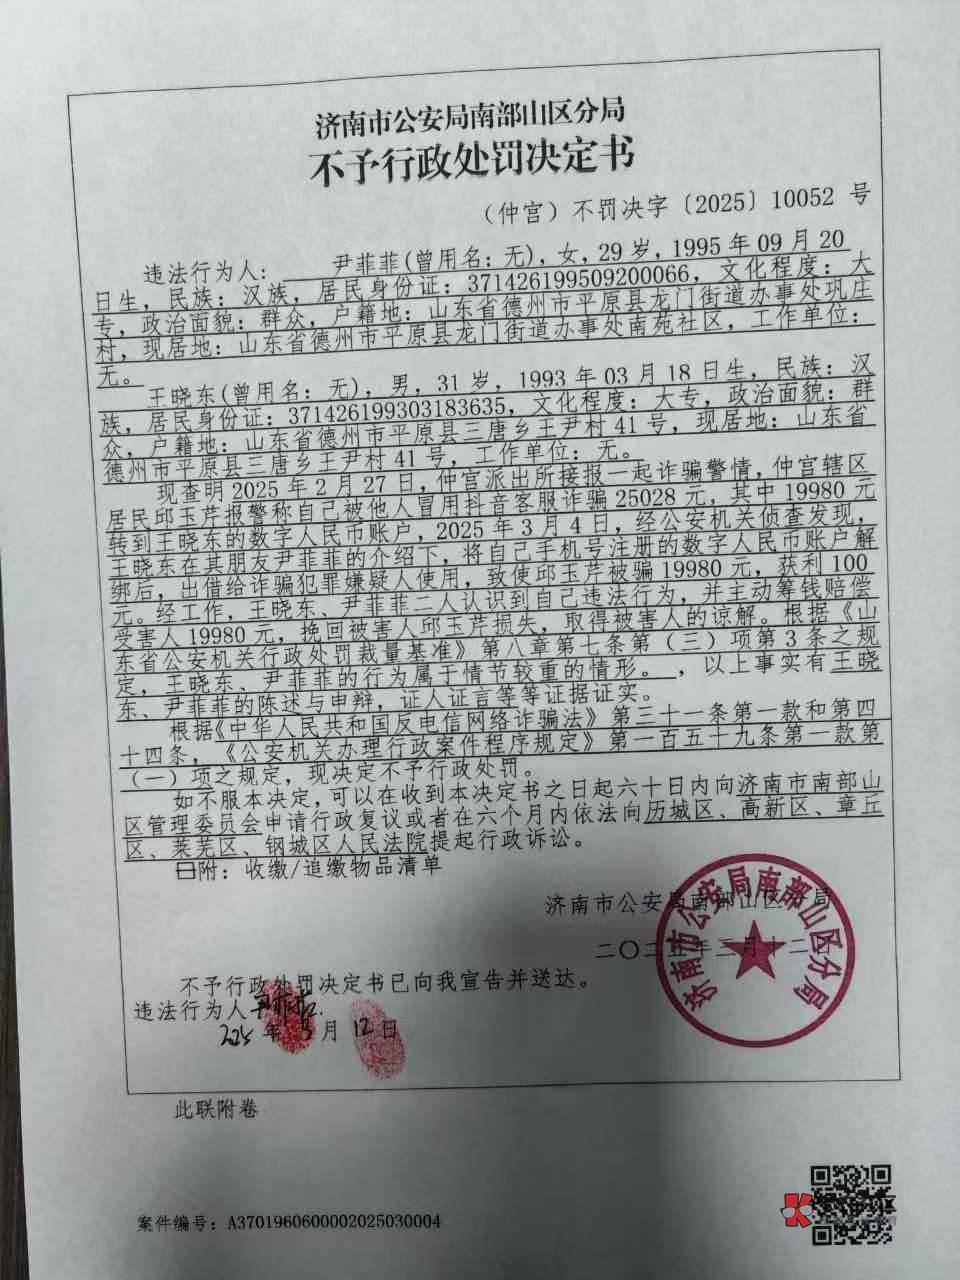 济南市公安局南部山区分局
不予行政处罚决定书
（仲宫）不罚决字〔2025〕10052 号
违法行为人：尹菲菲(曾用名：无)，女，29岁，1995年09月20
日生，民族：汉族，居民身份证：371426199509200066，文化程度：大
专，政治面貌：群众，户籍地：山东省德州市平原县龙门街道办事处巩庄
村，现居地：山东省德州市平原县龙门街道办事处南苑社区，工作单位：
无。
王晓东(曾用名：无)，男，31岁，1993年03月18日生，民族：汉
族，居民身份证：371426199303183635，文化程度：大专，政治面貌：群
众，户籍地：山东省德州市平原县三唐乡王尹村41号，现居地：山东省
德州市平原县三唐乡王尹村41号，工作单位：无。
现查明2025年2月27日，仲宫派出所接报一起诈骗警情，仲宫辖区
居民邱玉芹报警称自己被他人冒用抖音客服诈骗25028元，其中19980元
转到王晓东的数字人民币账户，2025年3月4日，经公安机关侦查发现，
王晓东在其朋友尹菲菲的介绍下，将自己手机号注册的数字人民币账户解
绑后，出借给诈骗犯罪嫌疑人使用，致使邱玉芹被骗19980元，获利100
元。经工作，王晓东、尹菲菲二人认识到自己违法行为，并主动筹钱赔偿
受害人19980元，挽回被害人邱玉芹损失，取得被害人的谅解。根据《山
东省公安机关行政处罚裁量基准》第八章第七条第（三）项第3条之规
定，王晓东、尹菲菲的行为属于情节较重的情形。，以上事实有王晓
东、尹菲菲的陈述与申辩，证人证言等等证据证实。
根据《中华人民共和国反电信网络诈骗法》第三十一条第一款和第四
十四条，《公安机关办理行政案件程序规定》第一百五十九条第一款第
（一）项之规定，现决定不予行政处罚。
如不服本决定，可以在收到本决定书之日起六十日内向济南市南部山
区管理委员会申请行政复议或者在六个月内依法向历城区、高新区、章丘
区、莱芜区、钢城区人民法院提起行政诉讼。
附：收缴/追缴物品清单
济南市公安局南部山区分局
二〇二五年三月十二日
济南市公安局南部山区分局
不予行政处罚决定书已向我宣告并送达。
违法行为人 尹菲菲.
2025年3月12日
此联附卷
案件编号：A3701960600002025030004